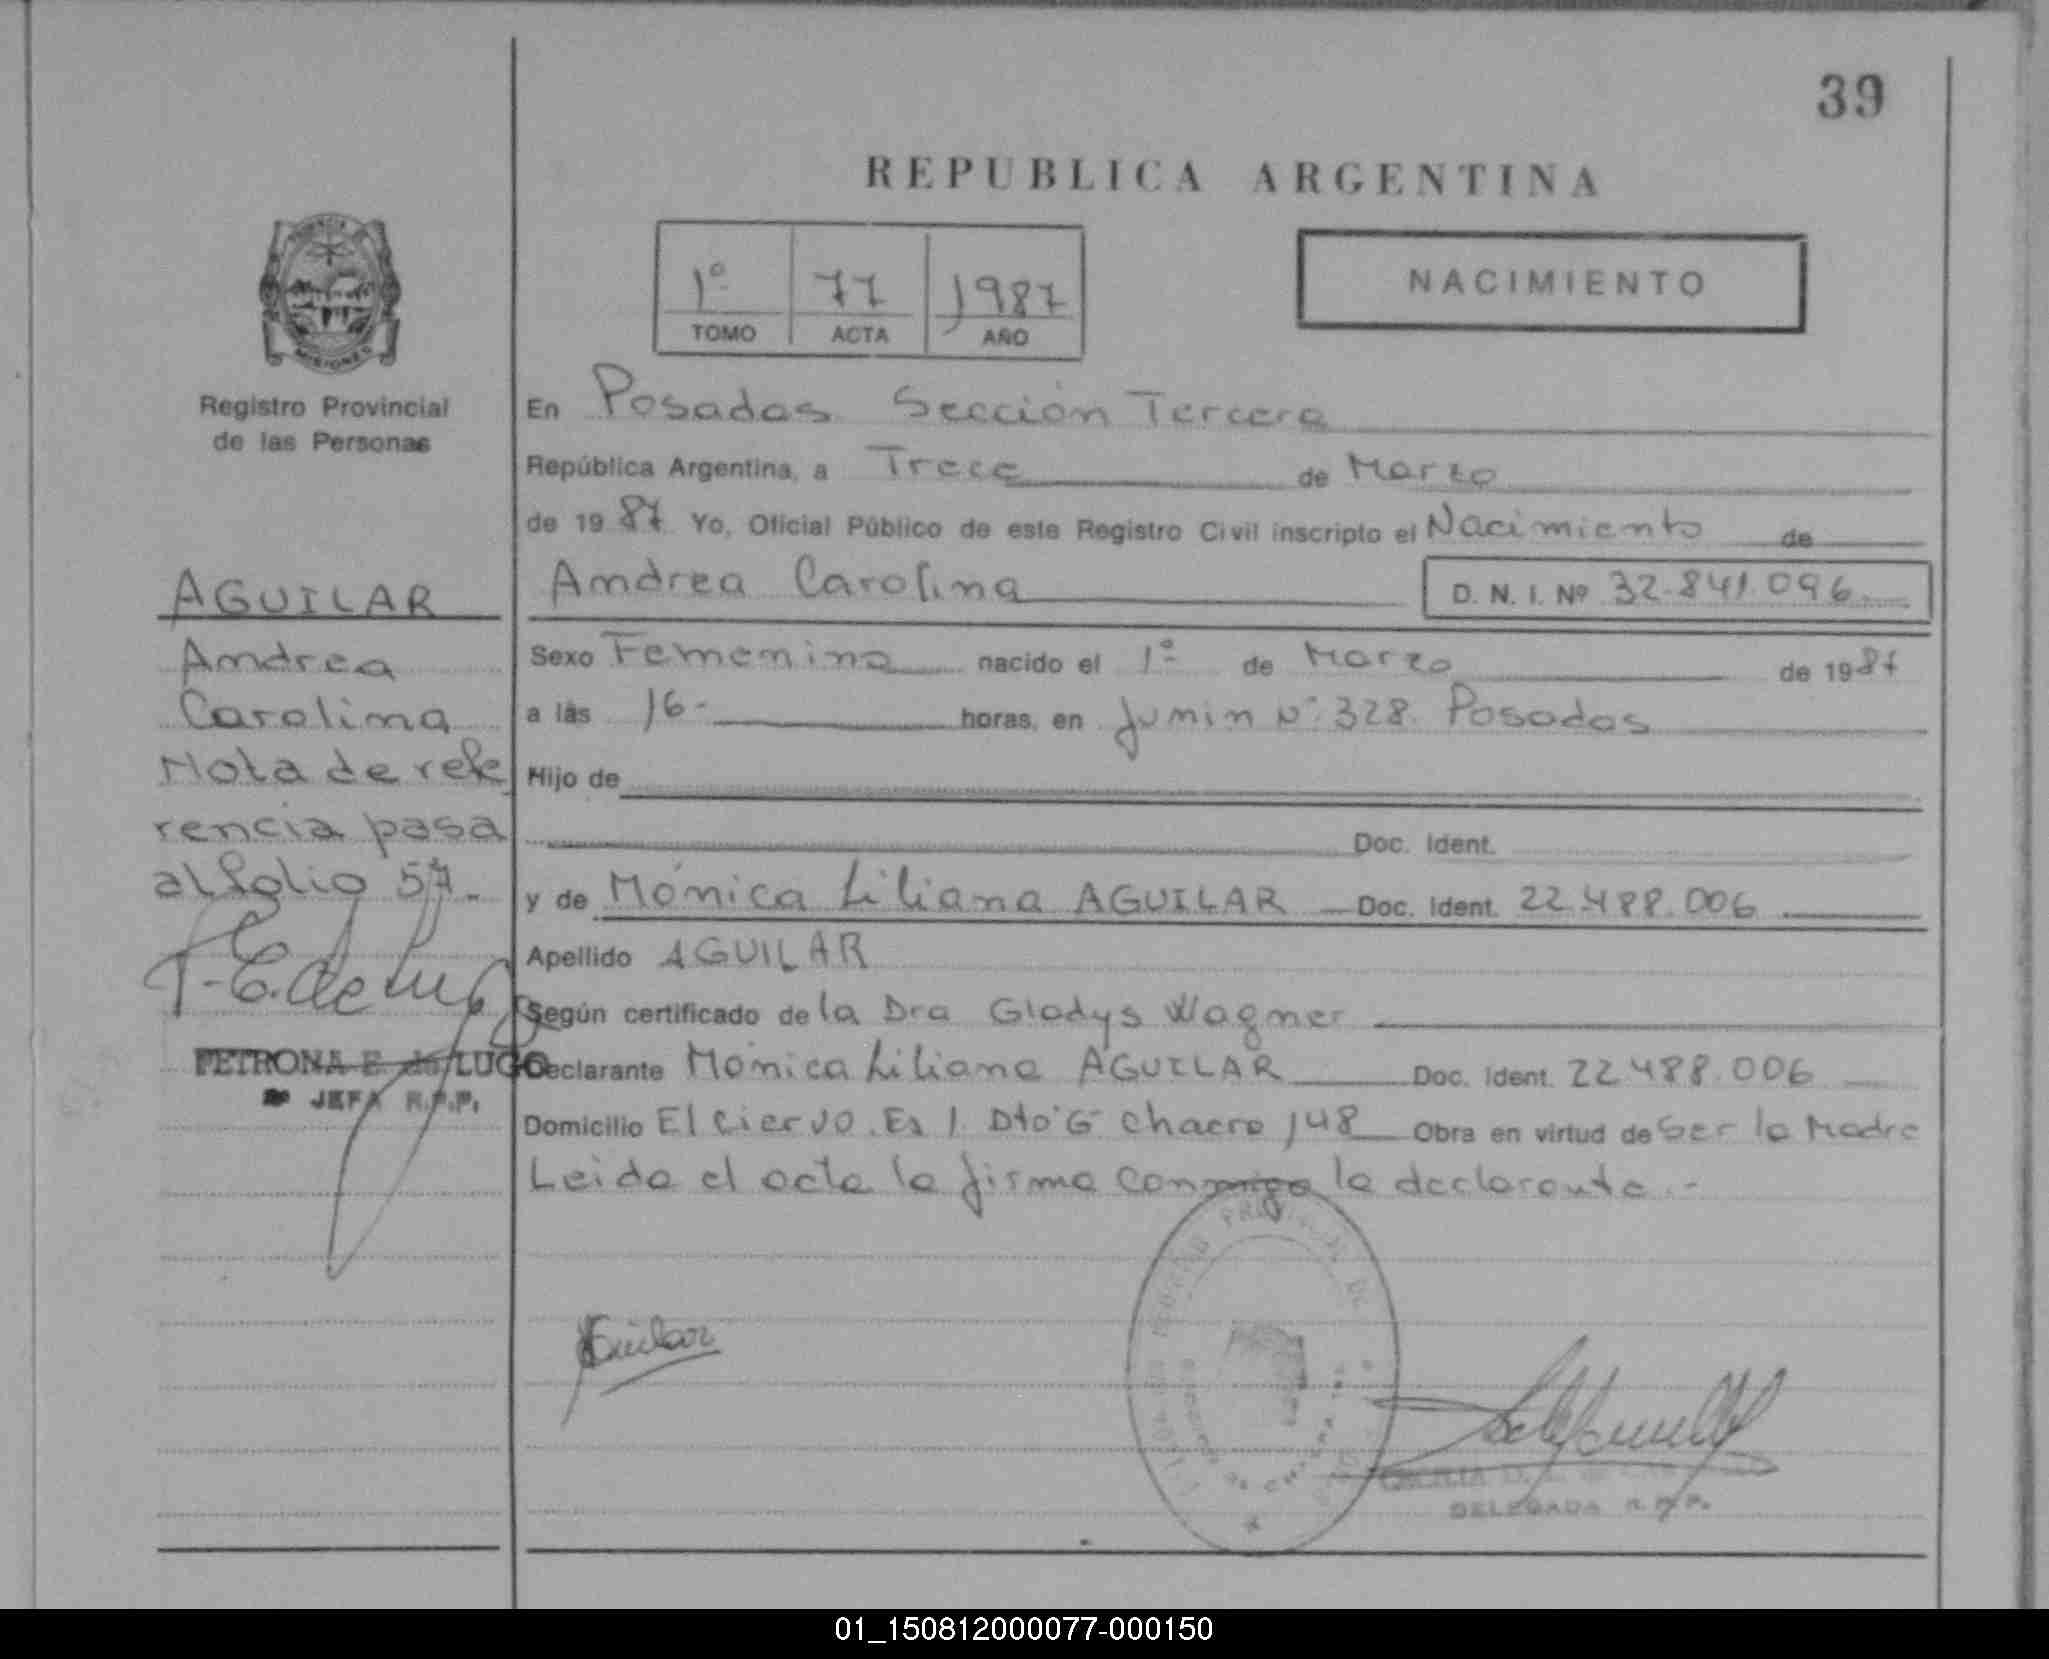 39
REPUBLICA ARGENTINA
1º 77 1987
TOMO ACTA AÑO
NACIMIENTO
MISIONES
Registro Provincial
de las Personas
AGUILAR
Andrea
Carolina
Nota de refe
rencia pasa
al folio 57.-
PETRONA E. de LUGO
JEFA R.P.P.
En Posadas Sección Tercera
República Argentina, a Trece de Marzo
de 1987 Yo, Oficial Público de este Registro Civil inscripto el Nacimiento de
Andrea Carolina D. N. I. Nº 32.841.096
Sexo Femenino nacido el 1º de Marzo de 1987
a las 16- horas, en Junin Nº 328 Posadas
Hijo de
Doc. Ident.
y de Mónica Liliana AGUILAR Doc. Ident. 22.488.006
Apellido AGUILAR
Según certificado de la Dra Gladys Wagner
Declarante Mónica Liliana AGUILAR Doc. Ident. 22.488.006
Domicilio El Ciervo. Es 1. Dto "G" Chacra 148 Obra en virtud de Ser la Madre
Leida el acta la firma conmigo la declarante.-
Aguilar
DELEGADA R.P.P.
01_150812000077-000150